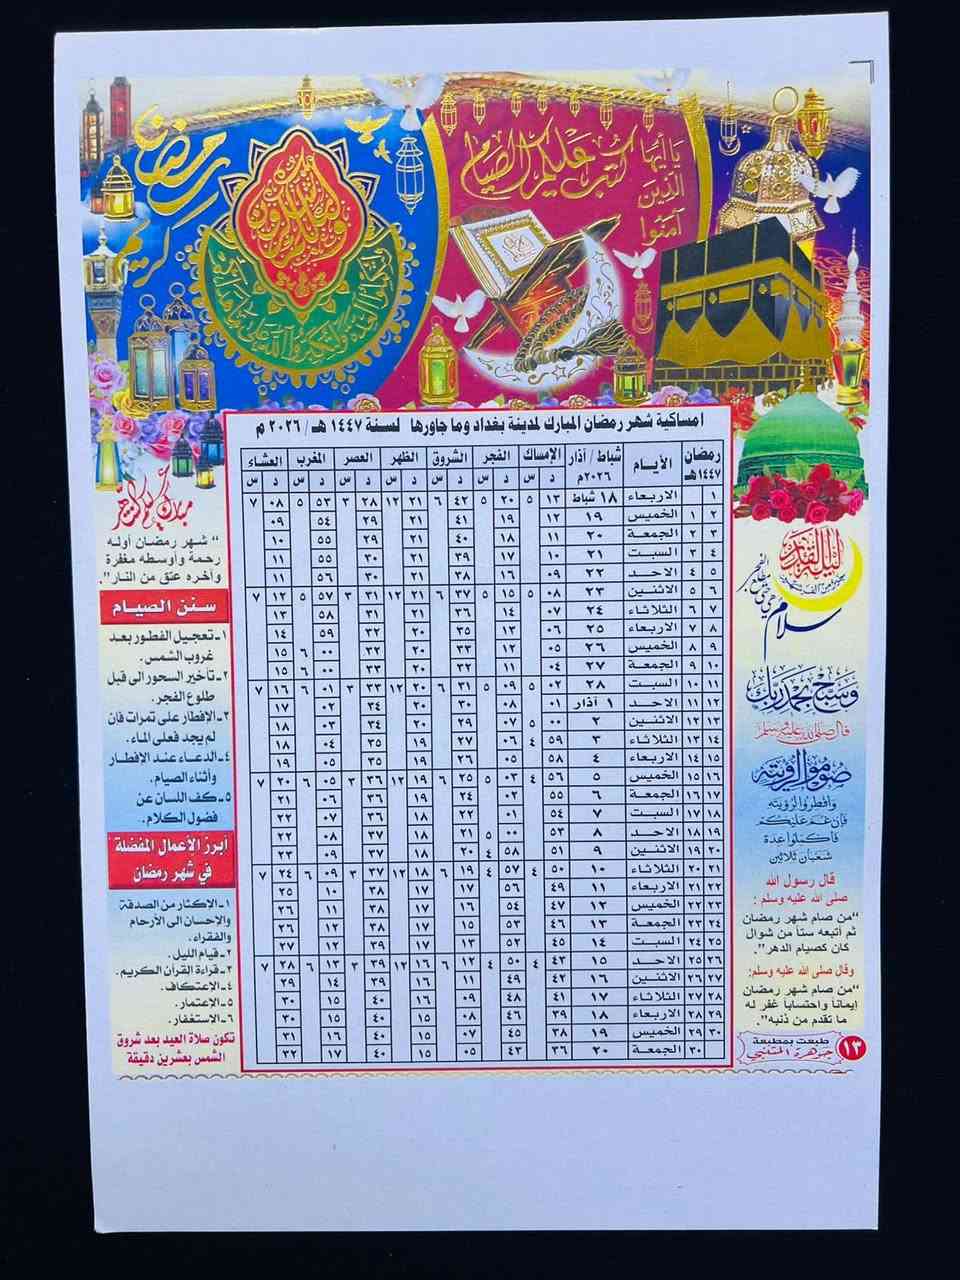 رمضان
كريم
يا أيها
الذين
آمنوا
كتب عليكم الصيام
امساكية شهر رمضان المبارك لمدينة بغداد وما جاورها لسنة ١٤٤٧ هـ / ٢٠٢٦ م
رمضان ١٤٤٧هـ الأيــام شباط / آذار ٢٠٢٦م الإمساك الفجر الشروق الظهر العصر المغرب العشاء
د س د س د س د س د س د س د س
١ الاربعاء ١٨ شباط ١٣ ٥ ٢٠ ٥ ٤٢ ٦ ٢١ ١٢ ٢٨ ٣ ٥٣ ٥ ٠٨ ٧
٢ ١ الخميس ١٩ ١٢ ١٩ ٤١ ٢١ ٢٩ ٥٤ ٠٩
٣ ٢ الجمعة ٢٠ ١١ ١٨ ٤٠ ٢١ ٢٩ ٥٥ ١٠
٤ ٣ السبت ٢١ ١٠ ١٧ ٣٩ ٢١ ٣٠ ٥٥ ١١
٥ ٤ الاحد ٢٢ ٠٩ ١٦ ٣٨ ٢١ ٣٠ ٥٦ ١١
٦ ٥ الاثنين ٢٣ ٠٨ ٥ ١٥ ٥ ٣٧ ٦ ٢١ ١٢ ٣١ ٣ ٥٧ ٥ ١٢ ٧
٧ ٦ الثلاثاء ٢٤ ٠٧ ١٤ ٣٦ ٢٠ ٣١ ٥٨ ١٣
٨ ٧ الاربعاء ٢٥ ٠٦ ١٣ ٣٥ ٢٠ ٣٢ ٥٩ ١٤
٩ ٨ الخميس ٢٦ ٠٥ ١٢ ٣٣ ٢٠ ٣٢ ٠٠ ٦ ١٥
١٠ ٩ الجمعة ٢٧ ٠٤ ١١ ٣٢ ٢٠ ٣٣ ٠٠ ١٥
١١ ١٠ السبت ٢٨ ٠٢ ٥ ٠٩ ٥ ٣١ ٦ ٢٠ ١٢ ٣٣ ٣ ٠١ ٦ ١٦ ٧
١٢ ١١ الاحد ١ آذار ٠١ ٠٨ ٣٠ ٢٠ ٣٤ ٠٢ ١٧
١٣ ١٢ الاثنين ٢ ٠٠ ٥ ٠٧ ٢٩ ٢٠ ٣٤ ٠٣ ١٨
١٤ ١٣ الثلاثاء ٣ ٥٩ ٤ ٠٦ ٢٧ ١٩ ٣٥ ٠٤ ١٨
١٥ ١٤ الاربعاء ٤ ٥٨ ٠٥ ٢٦ ١٩ ٣٥ ٠٥ ١٩
١٦ ١٥ الخميس ٥ ٥٦ ٤ ٠٣ ٥ ٢٥ ٦ ١٩ ١٢ ٣٦ ٣ ٠٥ ٦ ٢٠ ٧
١٧ ١٦ الجمعة ٦ ٥٥ ٠٢ ٢٤ ١٩ ٣٦ ٠٦ ٢١
١٨ ١٧ السبت ٧ ٥٤ ٠١ ٢٢ ١٨ ٣٦ ٠٧ ٢٢
١٩ ١٨ الاحد ٨ ٥٣ ٠٠ ٥ ٢١ ١٨ ٣٧ ٠٨ ٢٢
٢٠ ١٩ الاثنين ٩ ٥١ ٥٨ ٤ ٢٠ ١٨ ٣٧ ٠٩ ٢٣
٢١ ٢٠ الثلاثاء ١٠ ٥٠ ٤ ٥٧ ٤ ١٩ ٦ ١٨ ١٢ ٣٧ ٣ ٠٩ ٦ ٢٤ ٧
٢٢ ٢١ الاربعاء ١١ ٤٩ ٥٦ ١٧ ١٨ ٣٨ ١٠ ٢٥
٢٣ ٢٢ الخميس ١٢ ٤٧ ٥٤ ١٦ ١٧ ٣٨ ١١ ٢٦
٢٤ ٢٣ الجمعة ١٣ ٤٦ ٥٣ ١٥ ١٧ ٣٨ ١٢ ٢٦
٢٥ ٢٤ السبت ١٤ ٤٥ ٥٢ ١٣ ١٧ ٣٩ ١٢ ٢٧
٢٦ ٢٥ الاحد ١٥ ٤٣ ٤ ٥٠ ٤ ١٢ ٦ ١٦ ١٢ ٣٩ ٣ ١٣ ٦ ٢٨ ٧
٢٧ ٢٦ الاثنين ١٦ ٤٢ ٤٩ ١١ ١٦ ٣٩ ١٤ ٢٩
٢٨ ٢٧ الثلاثاء ١٧ ٤١ ٤٨ ٠٩ ١٦ ٤٠ ١٥ ٣٠
٢٩ ٢٨ الاربعاء ١٨ ٣٩ ٤٦ ٠٨ ١٥ ٤٠ ١٥ ٣٠
٣٠ ٢٩ الخميس ١٩ ٣٨ ٤٥ ٠٧ ١٥ ٤٠ ١٦ ٣١
٣٠ الجمعة ٢٠ ٣٦ ٤٣ ٠٥ ١٥ ٤٠ ١٧ ٣٢
ليلة القدر
خير من ألف شهر
سلام
هي حتى مطلع الفجر
وسبح بحمد ربك
قال صلى الله عليه وسلم
صوموا لرؤيته
وأفطروا لرؤيته
فإن غم عليكم
فأكملوا عدة
شعبان ثلاثين
قال رسول الله
صلى الله عليه وسلم :
"من صام شهر رمضان
ثم أتبعه ستاً من شوال
كان كصيام الدهر".
وقال صلى الله عليه وسلم:
"من صام شهر رمضان
إيماناً واحتساباً غفر له
ما تقدم من ذنبه".
طبعت بمطبعة
جوهرة المتنبي
١٣
مبارك عليكم الشهر
" شهر رمضان أوله
رحمة وأوسطه مغفرة
وآخره عتق من النار".
سنن الصيام
١- تعجيل الفطور بعد
غروب الشمس.
٢- تأخير السحور الى قبل
طلوع الفجر.
٣- الإفطار على تمرات فان
لم يجد فعلى الماء.
٤- الدعاء عند الإفطار
وأثناء الصيام.
٥- كف اللسان عن
فضول الكلام.
أبرز الأعمال المفضلة
في شهر رمضان
١- الإكثار من الصدقة
والإحسان الى الأرحام
والفقراء.
٢- قيام الليل.
٣- قراءة القرآن الكريم.
٤- الإعتكاف.
٥- الإعتمار.
٦- الإستغفار.
تكون صلاة العيد بعد شروق
الشمس بعشرين دقيقة